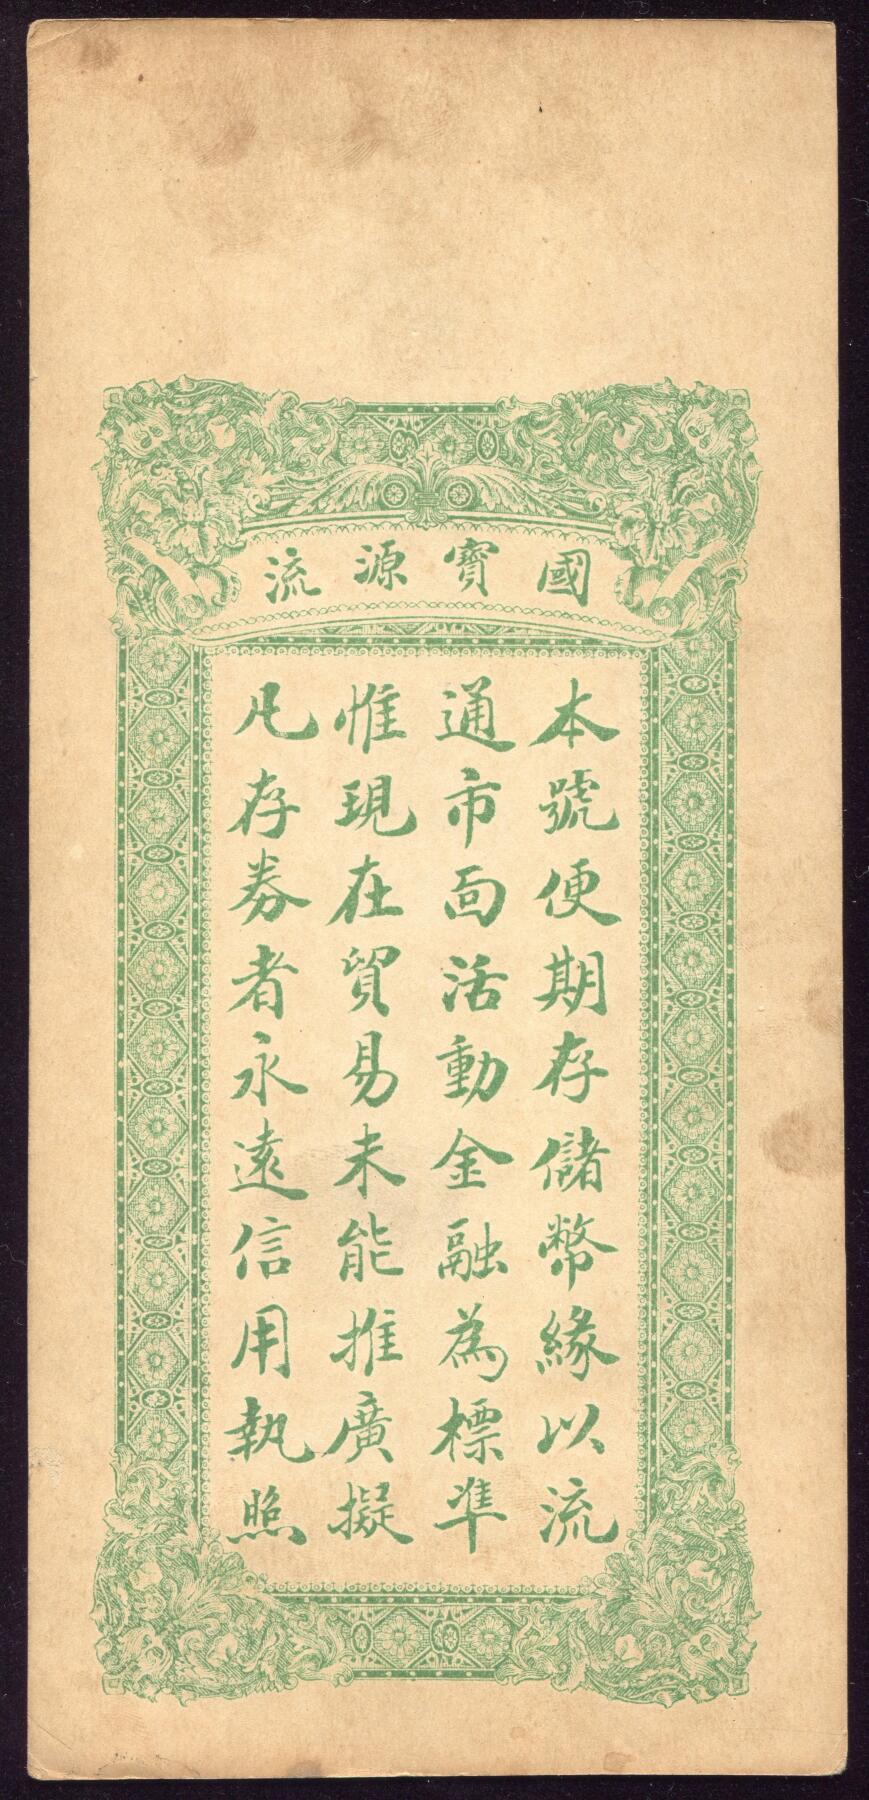 國寶源流
本號便期存儲幣緣以流
通市面活動金融為標準
惟現在貿易未能推廣擬
凡存券者永遠信用執照